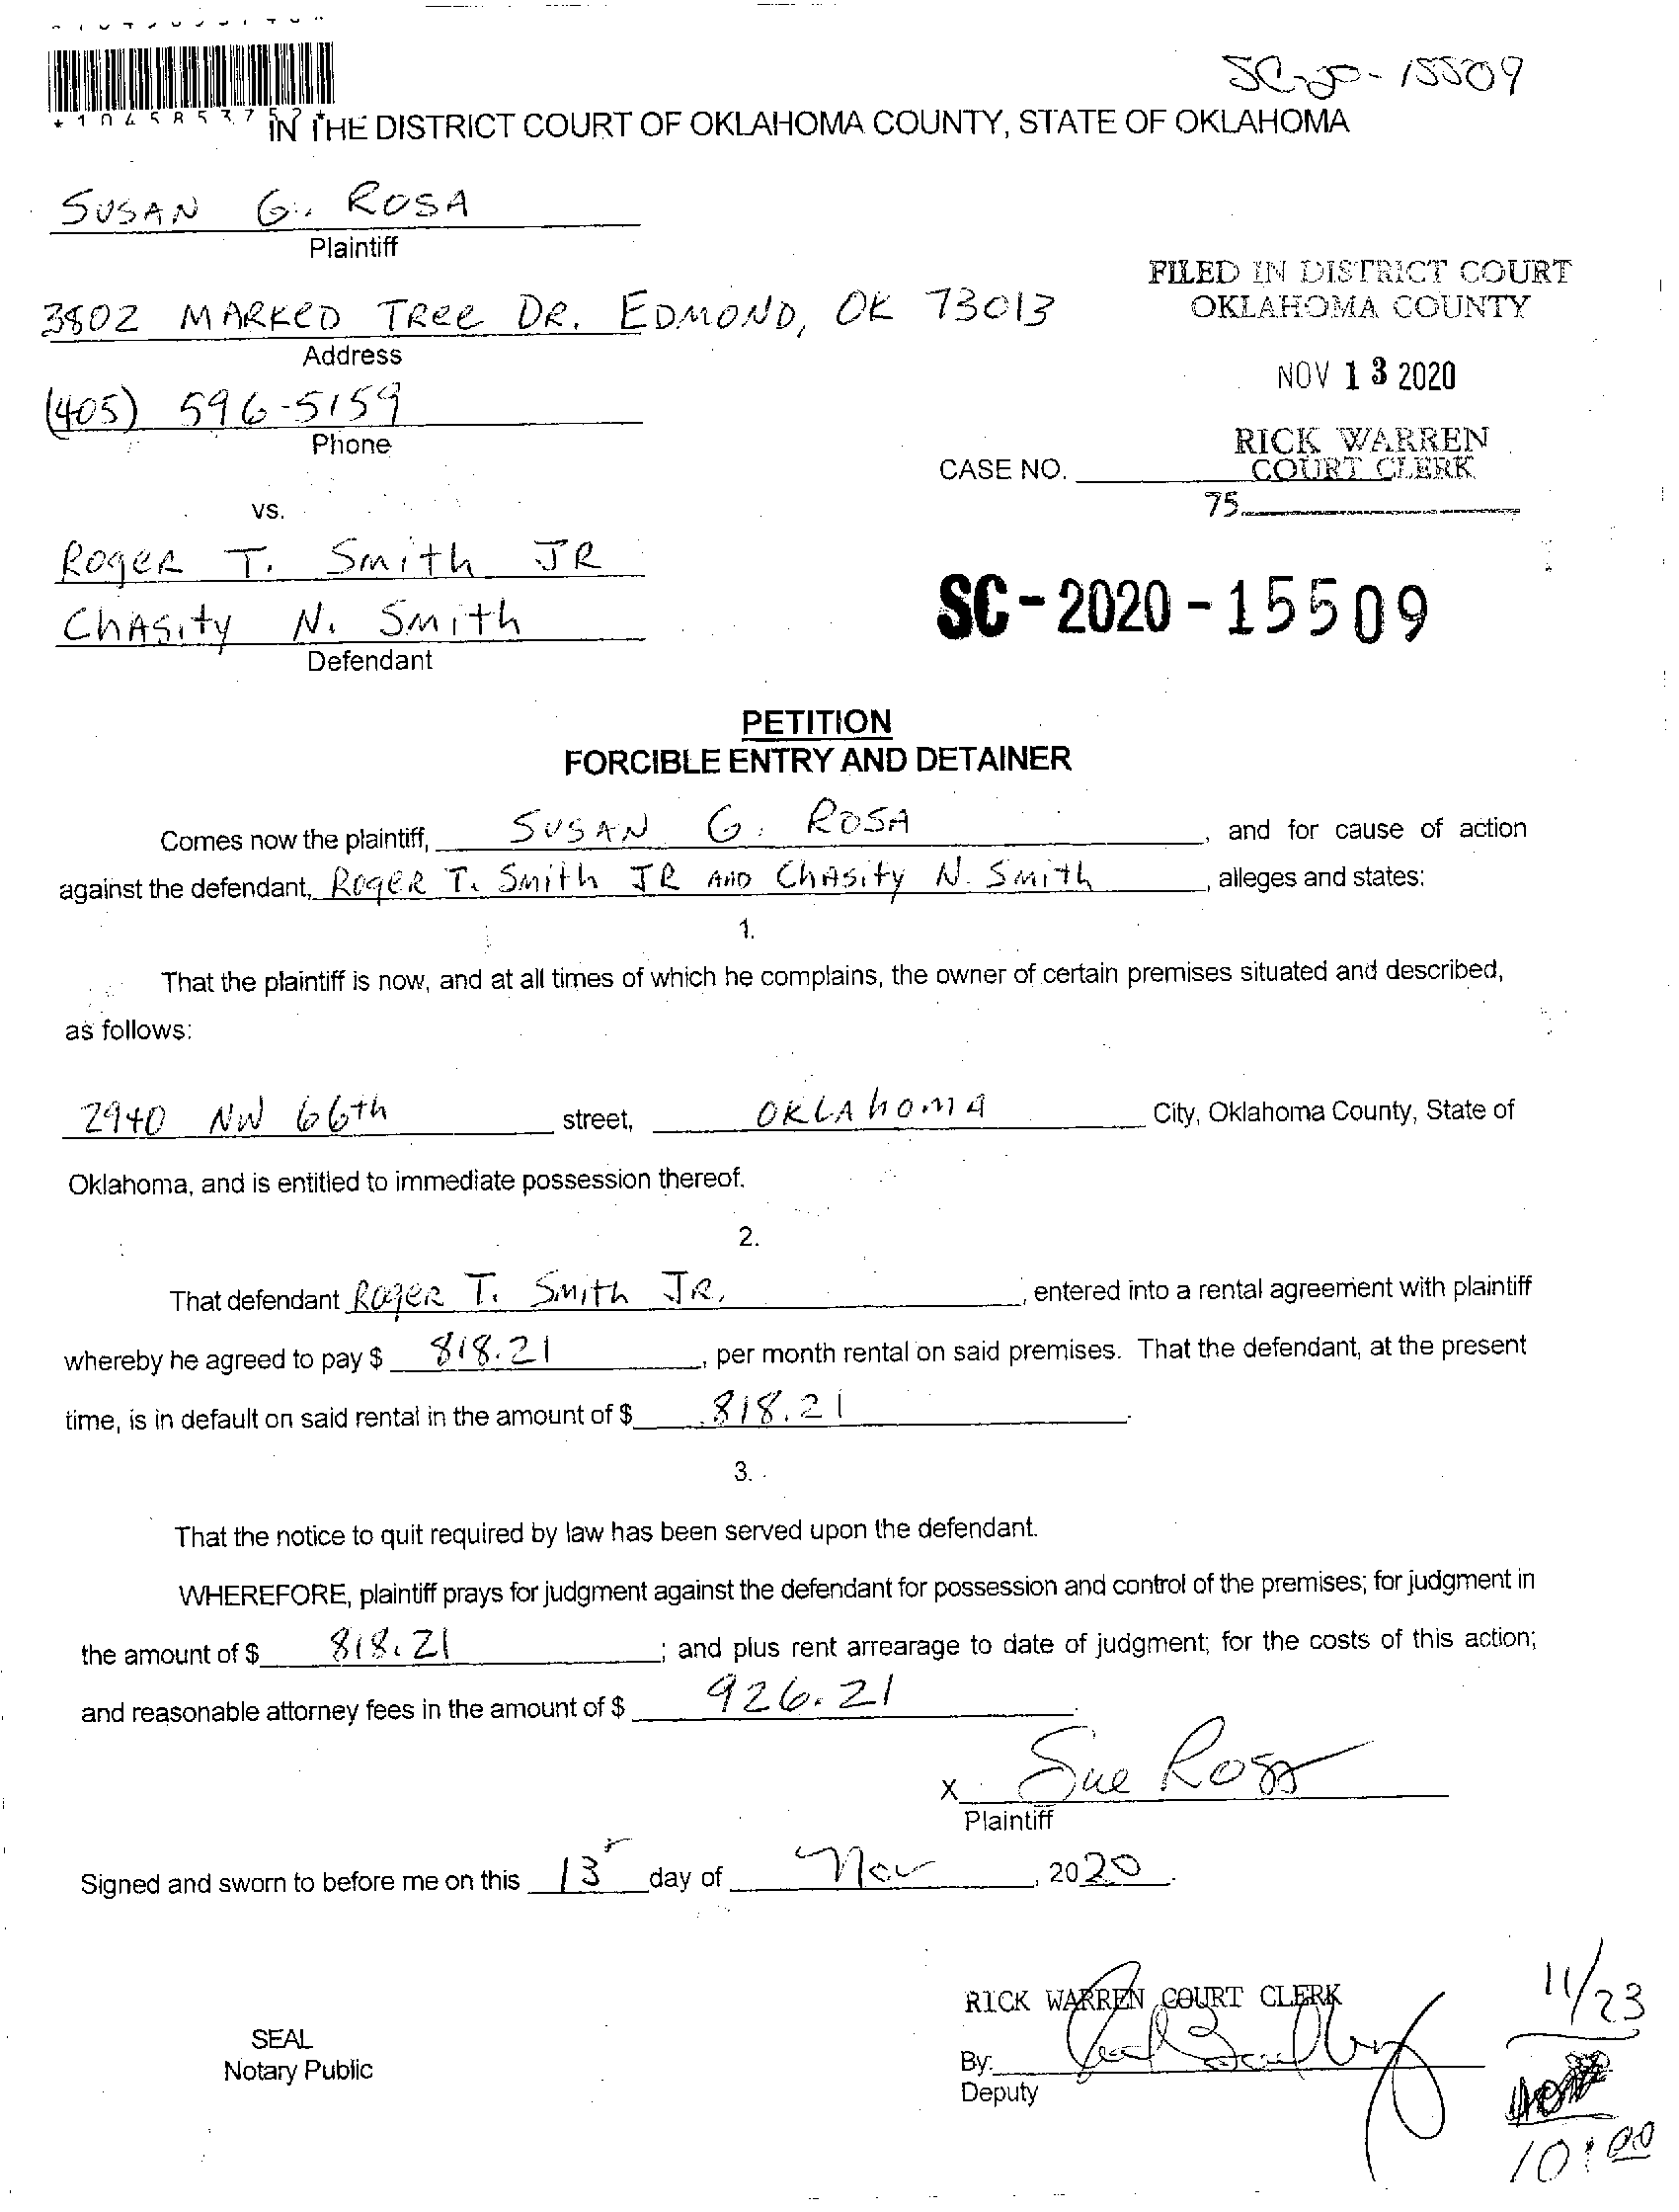 SC-20-15509
*1045853752*
IN THE DISTRICT COURT OF OKLAHOMA COUNTY, STATE OF OKLAHOMA
SUSAN G. ROSA
Plaintiff
3802 MARKED TREE DR. EDMOND, OK 73013
Address
(405) 596-5159
Phone
FILED IN DISTRICT COURT
OKLAHOMA COUNTY
NOV 13 2020
RICK WARREN
COURT CLERK
75
CASE NO.
vs.
ROGER T. Smith JR
ChAsity N. Smith
Defendant
SC-2020-15509
PETITION
FORCIBLE ENTRY AND DETAINER
Comes now the plaintiff, SUSAN G. ROSA, and for cause of action
against the defendant, ROGER T. Smith JR AND ChAsity N. Smith, alleges and states:
1.
That the plaintiff is now, and at all times of which he complains, the owner of certain premises situated and described,
as follows:
2940 NW 66th street, OKLAhomA City, Oklahoma County, State of
Oklahoma, and is entitled to immediate possession thereof.
2.
That defendant ROGER T. Smith JR., entered into a rental agreement with plaintiff
whereby he agreed to pay $ 818.21, per month rental on said premises. That the defendant, at the present
time, is in default on said rental in the amount of $ 818.21.
3.
That the notice to quit required by law has been served upon the defendant.
WHEREFORE, plaintiff prays for judgment against the defendant for possession and control of the premises; for judgment in
the amount of $ 818.21; and plus rent arrearage to date of judgment; for the costs of this action;
and reasonable attorney fees in the amount of $ 926.21.
X Sue Rosa
Plaintiff
Signed and sworn to before me on this 13 day of Nov, 2020.
RICK WARREN COURT CLERK
By:
Deputy
SEAL
Notary Public
11/23
10:00